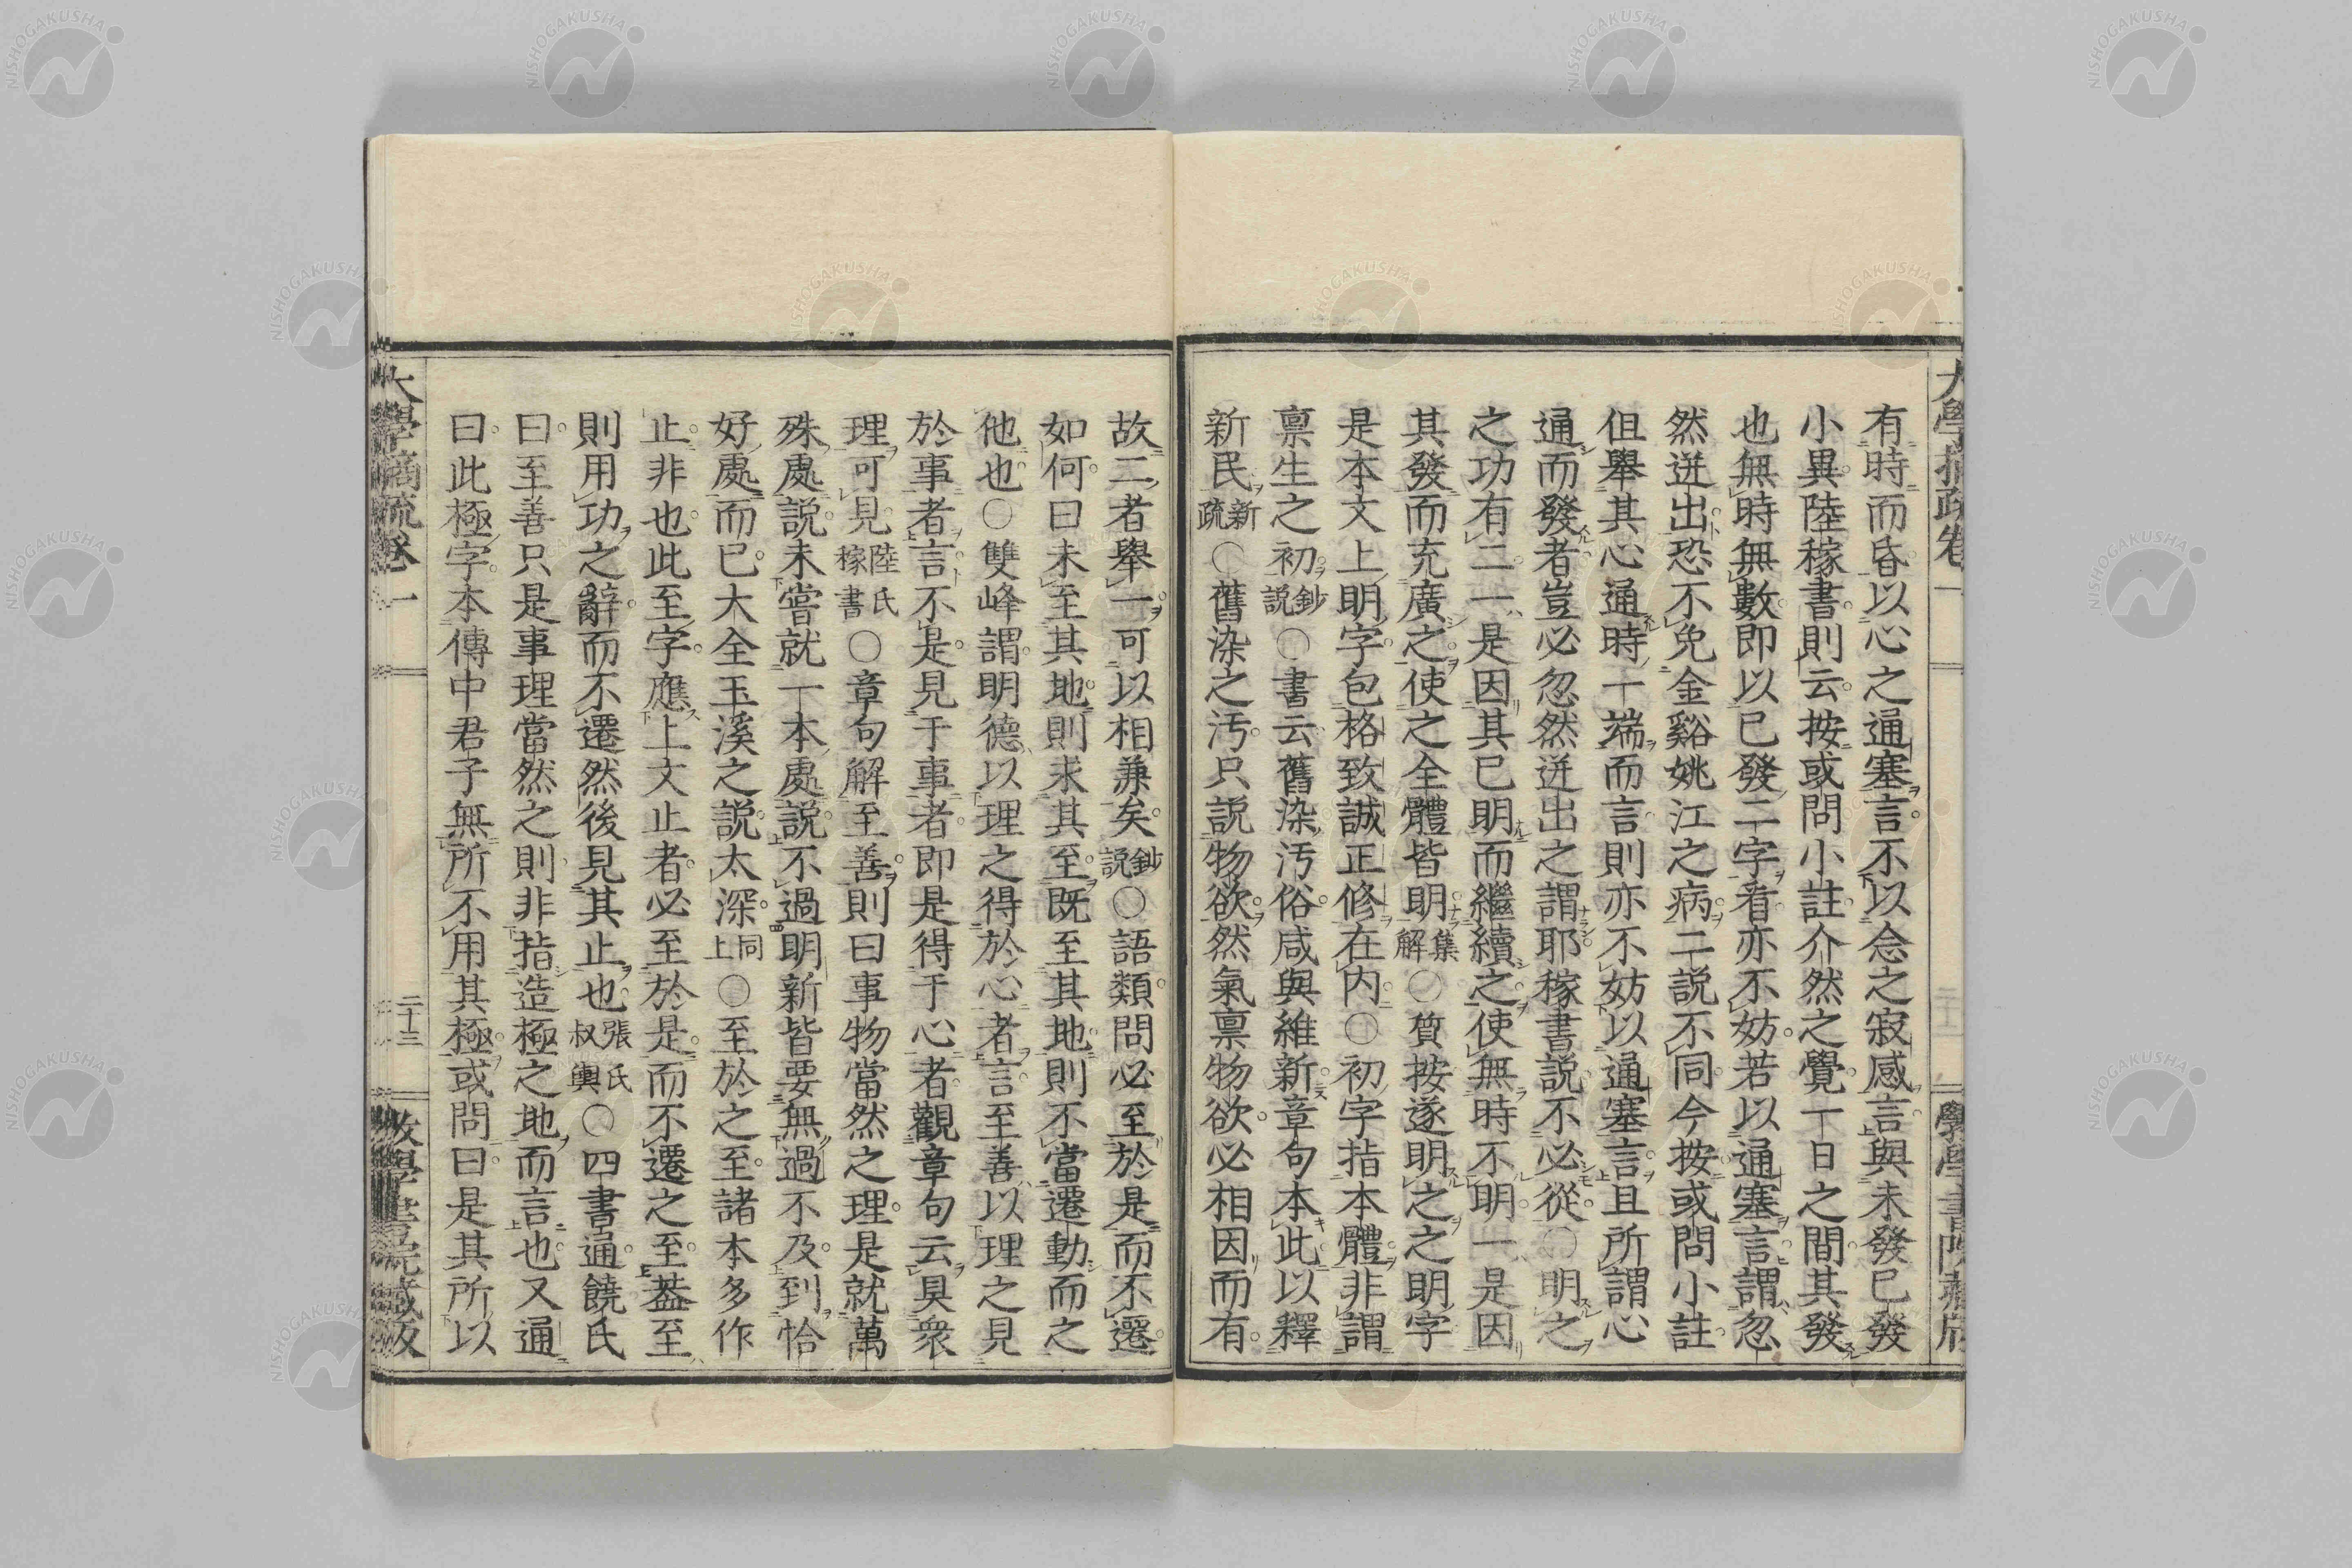 有時而昏以心之通塞言不以念之寂感言與未發已發
小異陸稼書則云按或問小註介然之覺一日之間其發
也無時無數即以已發二字看亦不妨若以通塞言謂忽
然迸出恐不免金谿姚江之病二説不同今按或問小註
但舉其心通時一端而言則亦不妨以通塞言且所謂心
通而發者豈必忽然迸出之謂耶稼書説不必從〇明之
之功有二一是因其已明而繼續之使無時不明一是因
其發而充廣之使之全體皆明集解〇質按遂明之之明字
是本文上明字包格致誠正修在内〇初字指本體非謂
禀生之初鈔説〇書云舊染汚俗咸與維新章句本此以釋
新民新疏〇舊染之汚只説物欲然氣禀物欲必相因而有
故二者舉一可以相兼矣鈔説〇語類問必至於是而不遷
如何曰未至其地則求其至既至其地則不當遷動而之
他也〇雙峰謂明德以理之得於心者言至善以理之見
於事者言不是見于事者即是得于心者觀章句云具衆
理可見陸氏稼書〇章句解至善則曰事物當然之理是就萬
殊處説未嘗就一本處説不過明新皆要無過不及到恰
好處而已大全玉溪之説太深同上〇至於之至諸本多作
止非也此至字應上文止者必至於是而不遷之至葢至
則用功之辭而不遷然後見其止也張氏叔輿〇四書通饒氏
曰至善只是事理當然之則非指造極之地而言也又通
曰此極字本傳中君子無所不用其極或問曰是其所以
大學摘疏卷一
二十三